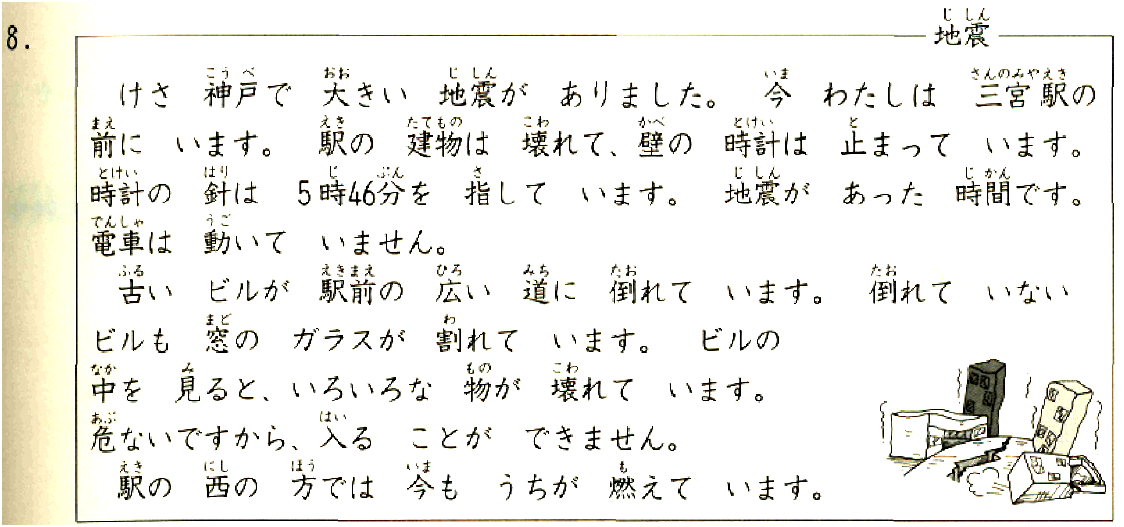 8.
地震
けさ 神戸で 大きい 地震が ありました。 今 わたしは 三宮駅の
前に います。 駅の 建物は 壊れて、壁の 時計は 止まって います。
時計の 針は 5時46分を 指して います。 地震が あった 時間です。
電車は 動いて いません。
古い ビルが 駅前の 広い 道に 倒れて います。 倒れて いない
ビルも 窓の ガラスが 割れて います。 ビルの
中を 見ると、いろいろな 物が 壊れて います。
危ないですから、入る ことが できません。
駅の 西の 方では 今も うちが 燃えて います。